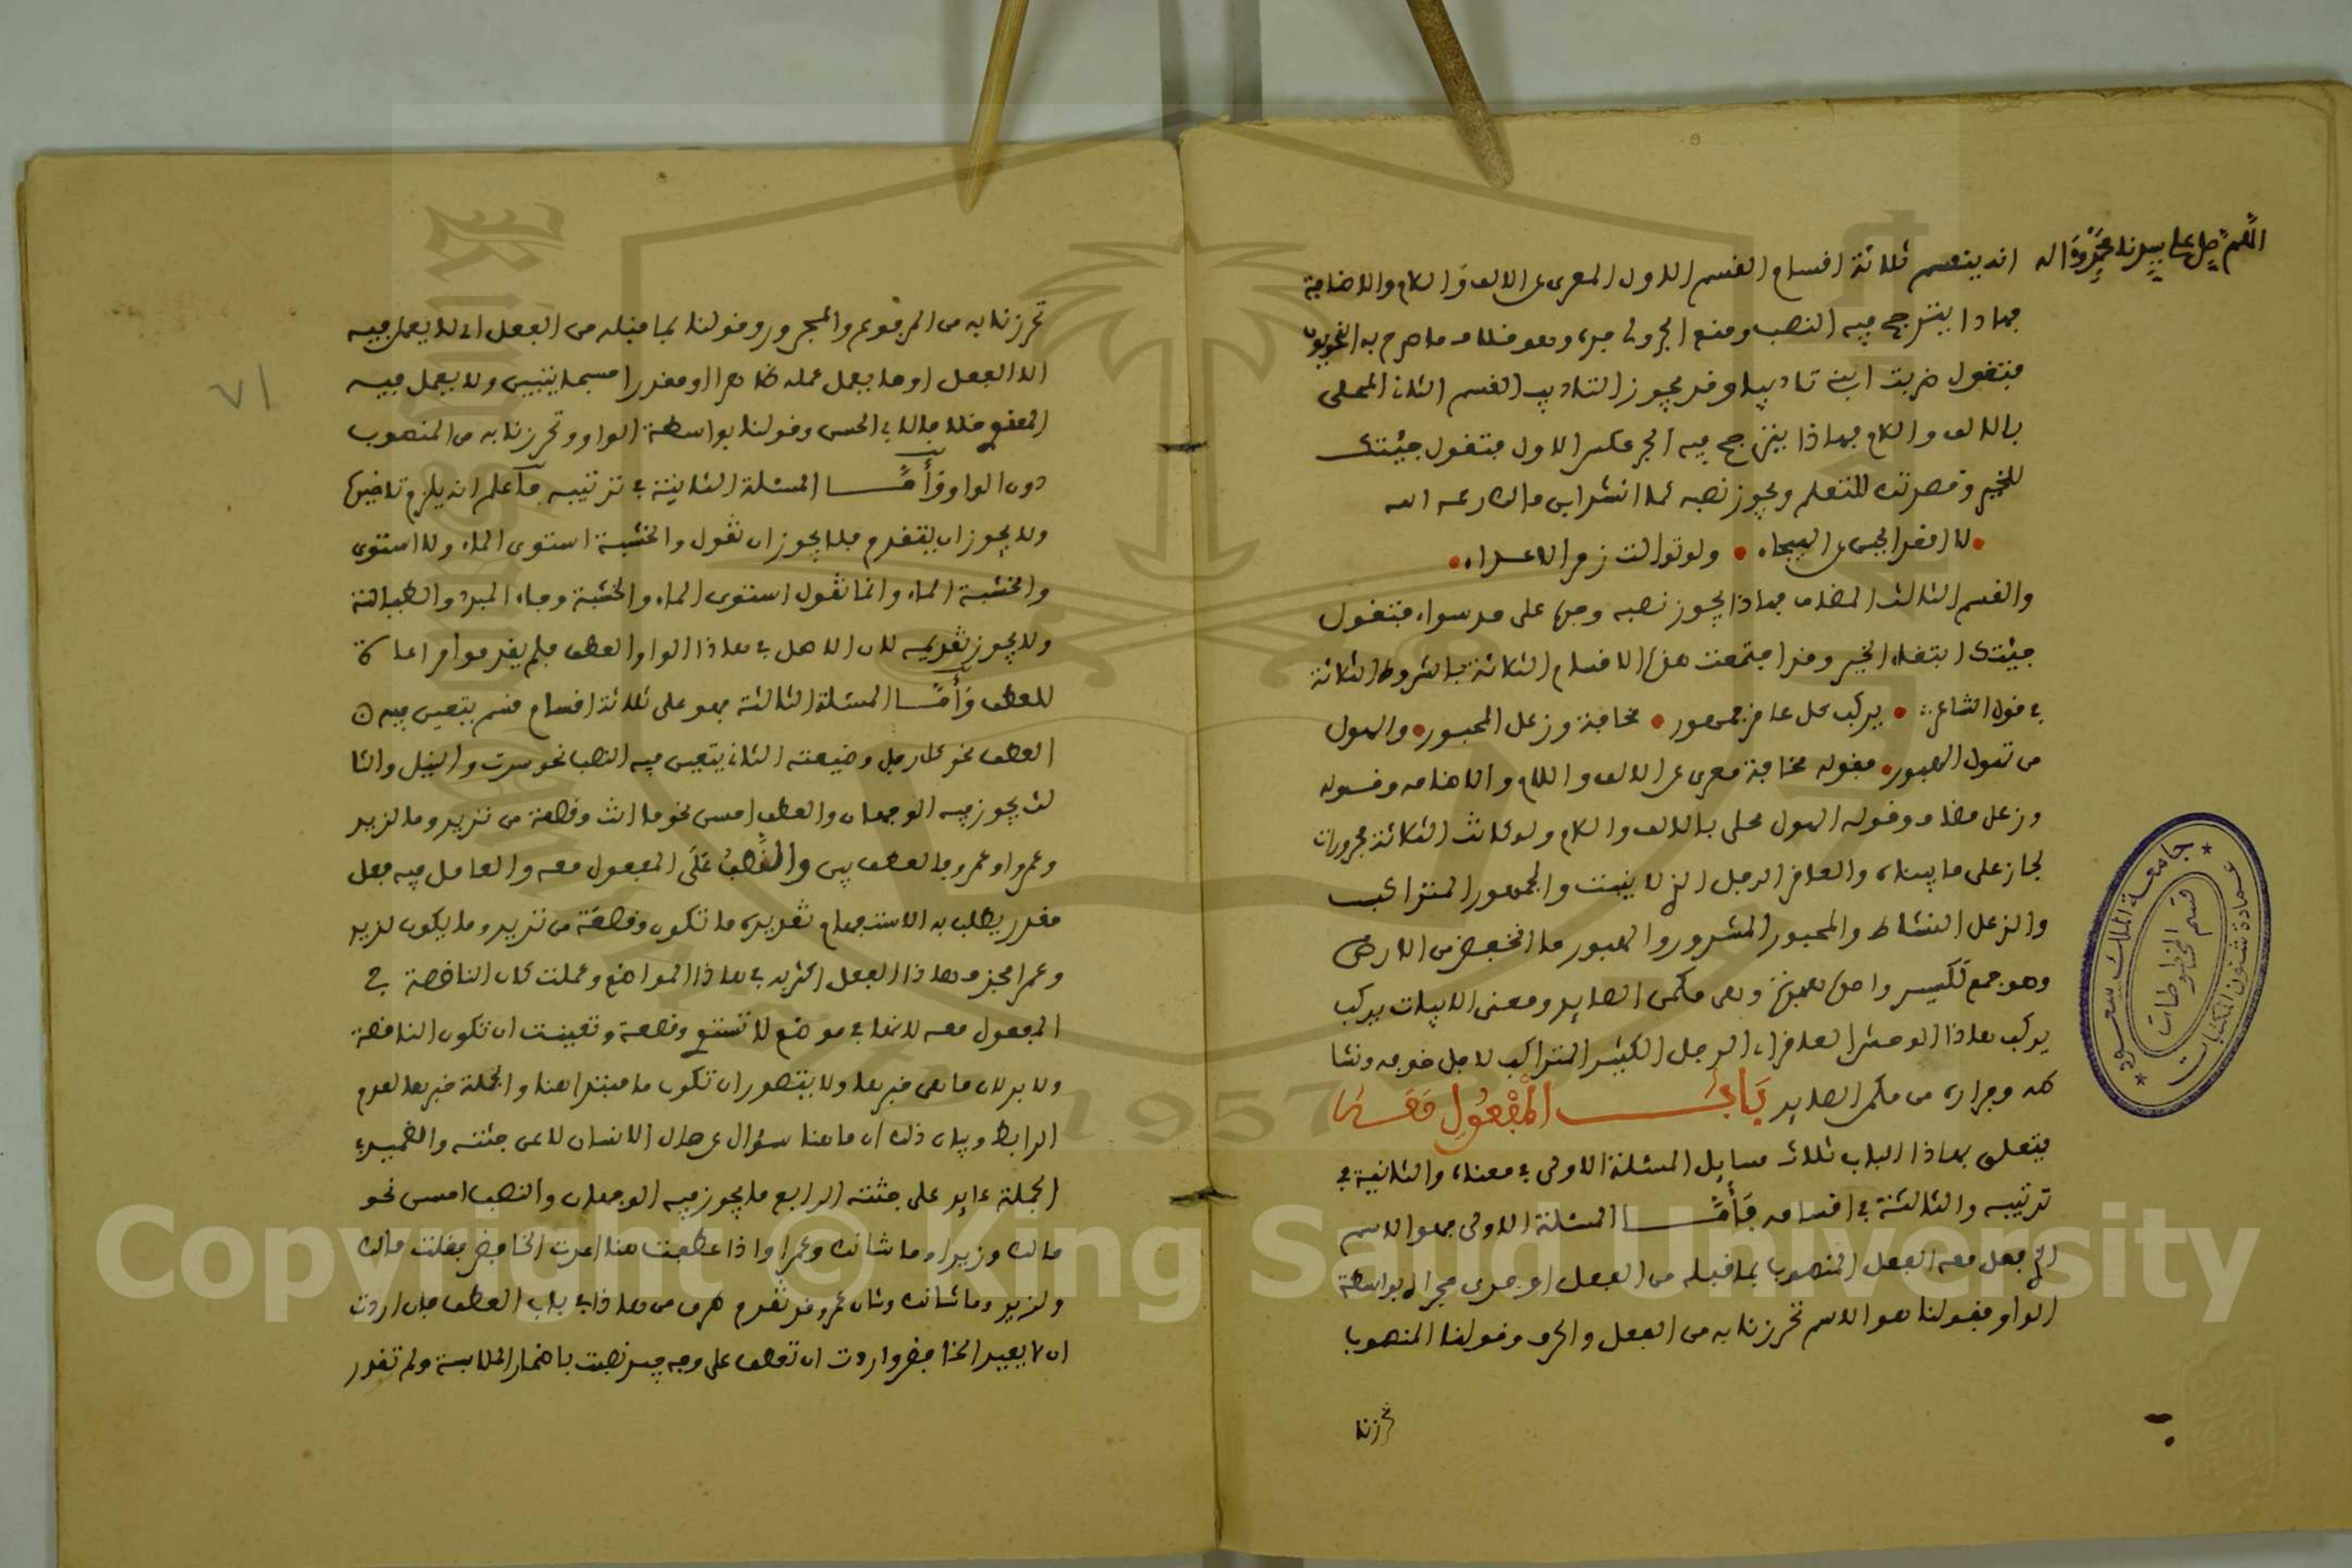 اللهم صل على سيدنا محمد وآله
انه ينقسم ثلاثة اقسام القسم الاول المعرى عن الالف واللام والاضافة
فهاذا يترجح فيه النصب ومنع الجزولي جره وهو خلاف ما صرح به النحويون
فتقول ضربت ابني تاديبا وقد يجوز التاديب القسم الثاني المحلى
بالالف واللام فهاذا يترجح فيه الجر عكس الاول فتقول جيتك
للخير وقصرتك للتعلم ويجوز نصبه كما انشد ابن مالك رحمه الله
لا اقعد الجبن عن الهيجاء ولو توالت زمر الاعداء
والقسم الثالث المضاف فهاذا يجوز نصبه وجره على حد سواء فتقول
جيتك ابتغاء الخير وقد اجتمعت هذه الاقسام الثلاثة بالشروط الثلاثة
في قول الشاعر يركب كل عاقر جمهور مخافة وزعل المحبور والهول
من تهول الهبور فقوله مخافة معرى عن الالف واللام والاضافة وقوله
وزعل مضاف وقوله الهول محلى بالالف واللام ولو كانت الثلاثة مجرورات
لجاز على ما بيناه والعاقر الرمل الذي لا ينبت والجمهور المتراكب
والزعل النشاط والمحبور المسرور والهبور ما انخفض من الارض
وهو جمع تكسير واحده هبرة وهى مكمن الصايد ومعنى الابيات يركب
يركب هاذا الوحش العاقر اي الرمل الكثير المتراكب لاجل خوفه ونشا
طه وفراره من مكمن الصايد باب المفعول معه
يتعلق بهاذا الباب ثلاث مسايل المسئلة الاولى في معناه والثانية في
ترتيبه والثالثة في اقسامه فأما المسئلة الاولى فهو الاسم
الذي فعل معه الفعل المنصوب بما قبله من الفعل او جرى مجراه بواسطة
الواو فقولنا هو الاسم تحرزنا به من الفعل والحرف وقولنا المنصوب
تحرزنا
٧١
تحرزنا به من المرفوع والمجرور وقولنا بما قبله من الفعل اي لا يعمل فيه
الا الفعل او ما يعمل عمله ظاهرا او مقدرا حسبما يتبين ولا يعمل فيه
المعنى خلافا لابي الحسن وقولنا بواسطة الواو وتحرزنا به من المنصوب
دون الواو وأما المسئلة الثانية في ترتيبه فاعلم انه يلزم تاخيره
ولا يجوز ان يتقدم فلا يجوز ان تقول والخشبة استوى الماء ولا استوى
والخشبة الماء وانما تقول استوى الماء والخشبة وجاء البرد والطيالسة
ولا يجوز تقديمه لان الاصل في هاذا الواو العطف فلم يقدموا مراعاة
للعطف وأما المسئلة الثالثة فهو على ثلاثة اقسام قسم يتعين فيه
العطف نحو كل رجل وضيعته الثاني يتعين فيه النصب نحو سرت والنيل والثا
لث يجوز فيه الوجهان والعطف احسن نحو ما انت وقصعة من ثريد وما لزيد
وعمرا وعمرو فالعطف بين والنصب على المفعول معه والعامل فيه فعل
مقدر يطلب به الاستفهام تقديره ما تكون وقصعة من ثريد وما يكون لزيد
وعمرا فحذف هاذا الفعل اكثر به في هاذا المواضع وعملت كان الناقصة في
المفعول معه لانها في موضع لا تستغ وقصعة وتعينت ان تكون الناقصة
ولا بد لان ما هى خبرها ولا يتصور ان تكون ما مبتدا هنا والجملة خبرها لعدم
الرابط وبيان ذلك ان ما هنا سؤال عن حال الانسان لا عن جثته والضمير في
الجملة عايد على جثته الرابع ما يجوز فيه الوجهان والنصب احسن نحو
مالك وزيدا وما شانك وعمرا واذا عطفت هنا اعدت الخافض فقلت مالك
ولزيد وما شانك وشان عمرو وقد تقدم طرف من هاذا في باب العطف فان اردت
ان لا يعيد الخافض واردت ان تعطف على وجه حسن نصبت باضمار الملابسة ولم تقدر
جامعة الملك سعود
عمادة شئون المكتبات
قسم المخطوطات
1957
Copyright © King Saud University